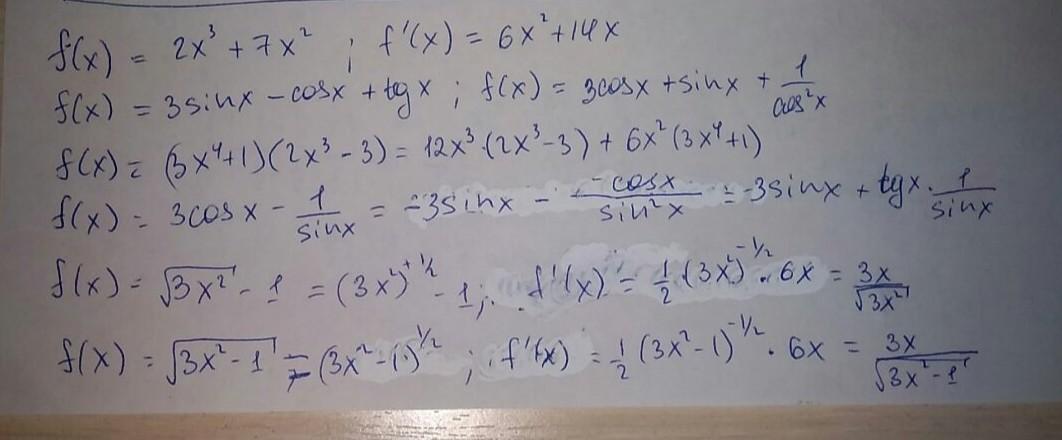 f(x) = 2x³ + 7x² ; f'(x) = 6x² + 14x
f(x) = 3sinx − cosx + tgx ; f(x) = 3cosx + sinx + 1/cos²x
f(x) = (3x⁴+1)(2x³ − 3) = 12x³·(2x³−3) + 6x²(3x⁴+1)
f(x) = 3cosx − 1/sinx = −3sinx − −cosx/sin²x = −3sinx + tgx · 1/sinx
f(x) = √(3x²) − 1 = (3x²)^(+1/2) − 1; f'(x) = 1/2 (3x²)^(−1/2) · 6x = 3x/√(3x²)
f(x) = √(3x² − 1) = (3x² − 1)^(1/2) ; f'(x) = 1/2 (3x² − 1)^(−1/2) · 6x = 3x/√(3x² − 1)